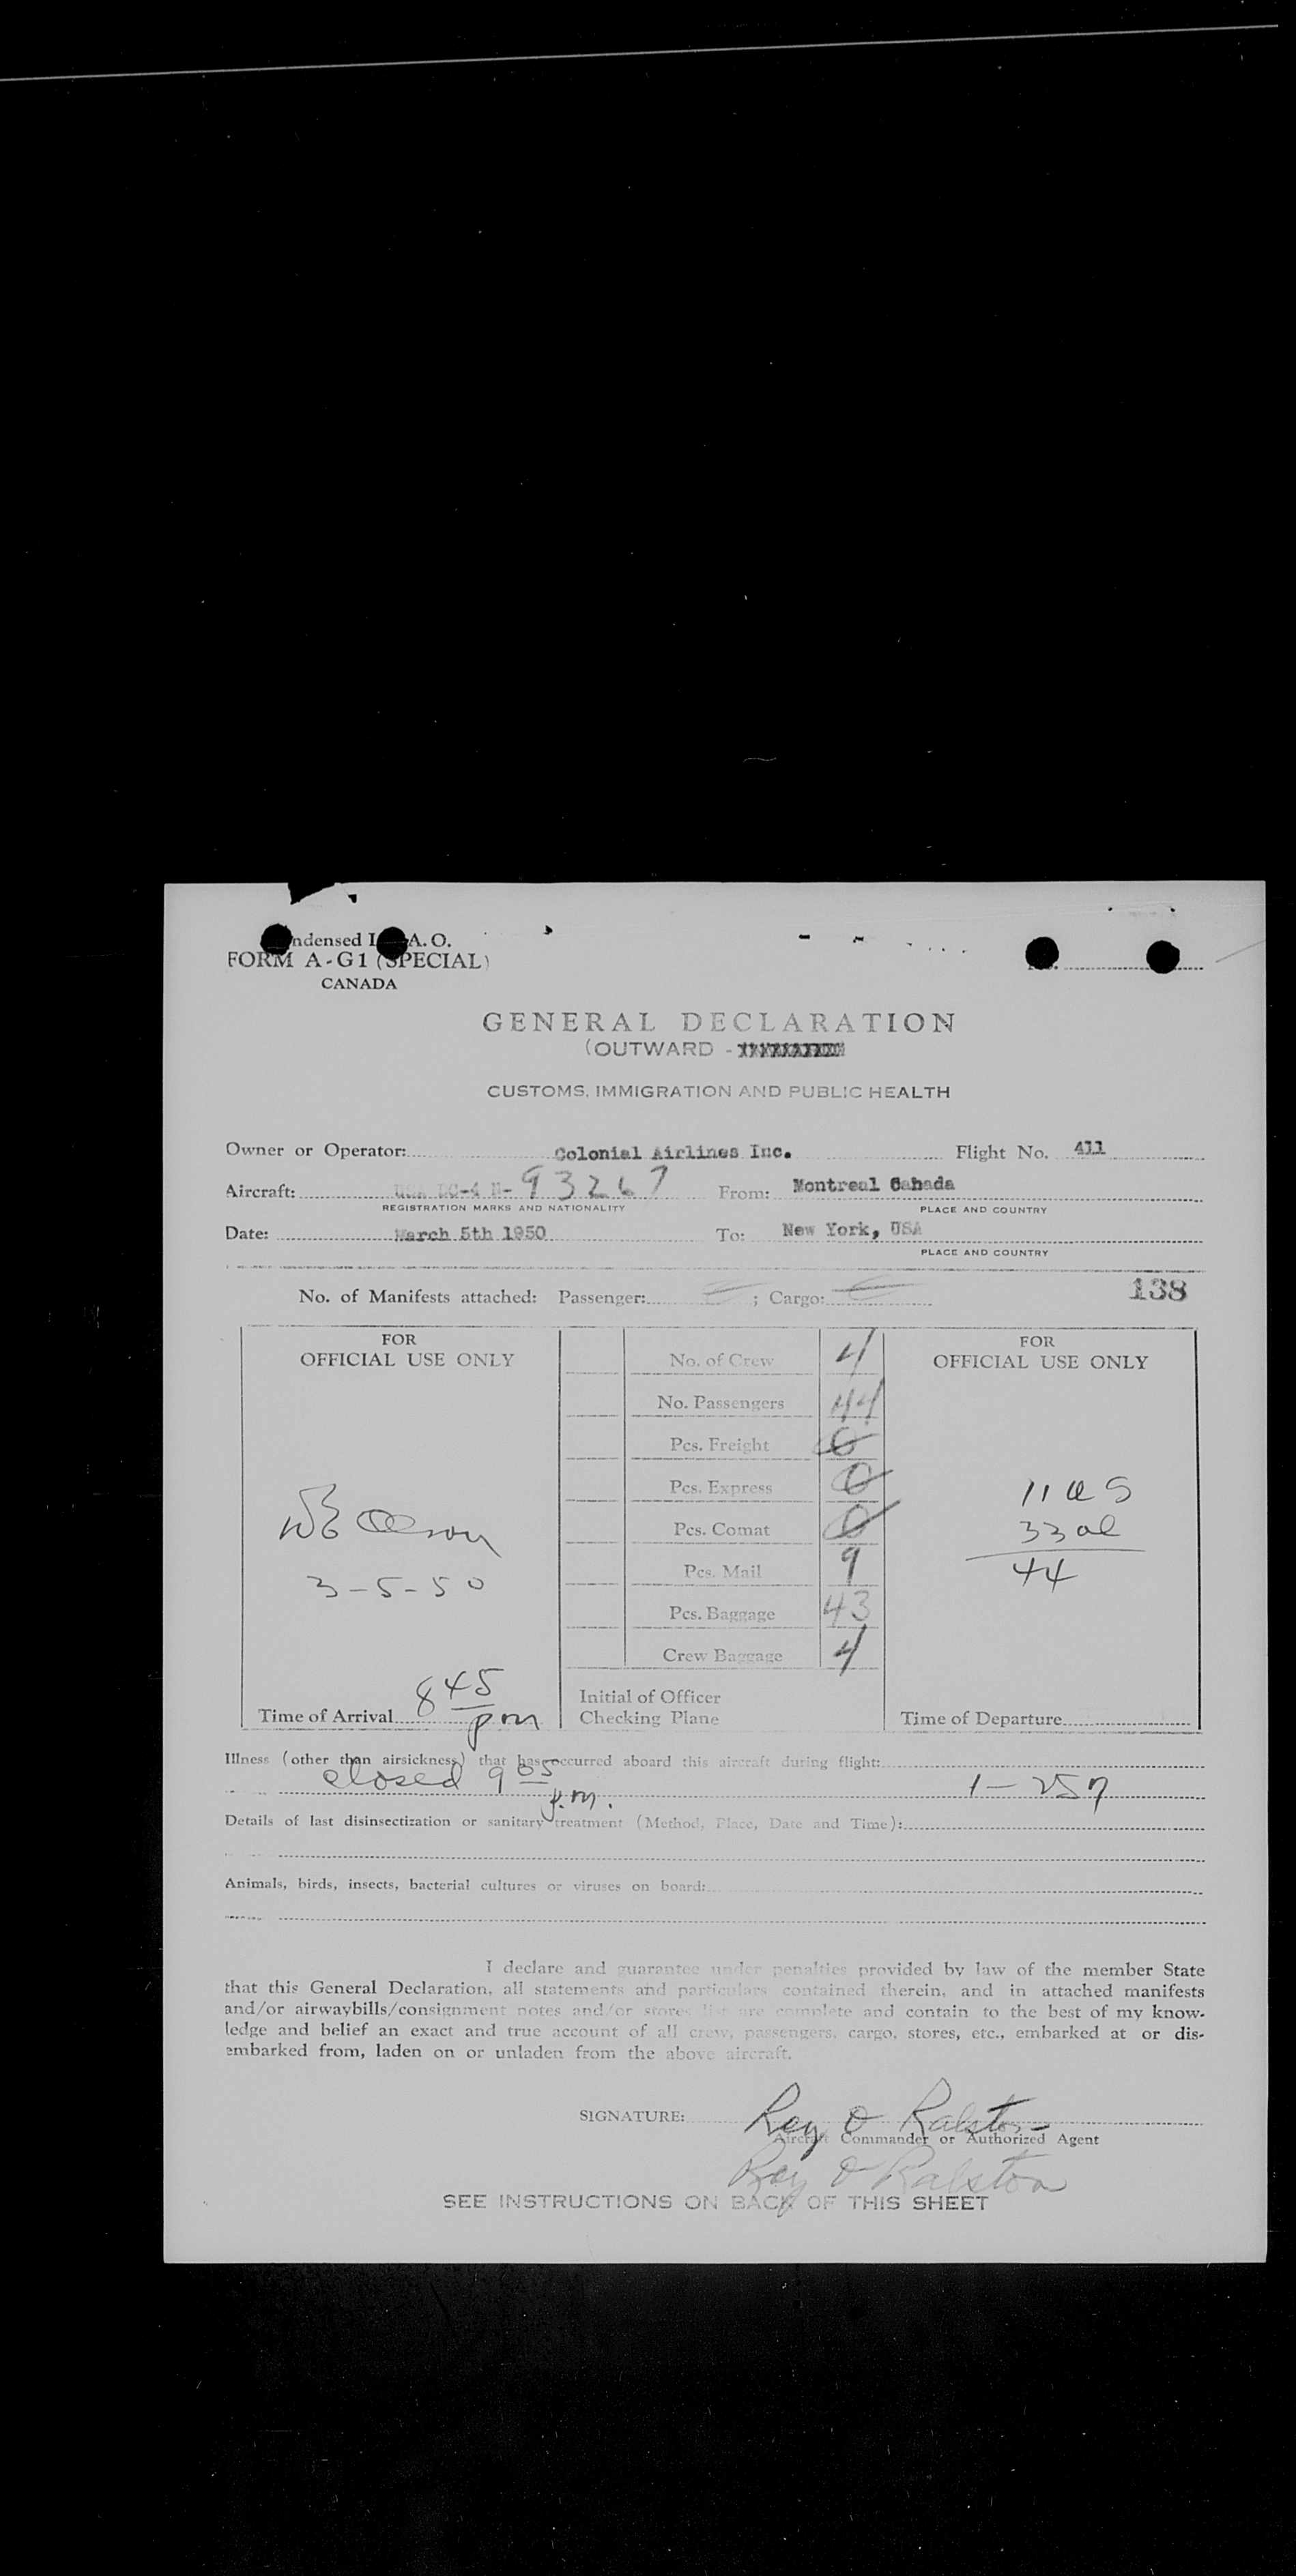 ndensed I A. O.
FORM A-G1 (SPECIAL)
CANADA
GENERAL DECLARATION
(OUTWARD -
CUSTOMS, IMMIGRATION AND PUBLIC HEALTH
Owner or Operator: Colonial Airlines Inc. Flight No. 411
Aircraft: USA DC-4 N- 93267 From: Montreal Canada
REGISTRATION MARKS AND NATIONALITY PLACE AND COUNTRY
Date: March 5th 1950 To: New York, USA
PLACE AND COUNTRY
No. of Manifests attached: Passenger: ; Cargo: 138
FOR OFFICIAL USE ONLY
No. of Crew 4
No. Passengers 44
Pcs. Freight 0
Pcs. Express 0
Pcs. Comat 0
Pcs. Mail 9
Pcs. Baggage 43
Crew Baggage 4
Initial of Officer
Checking Plane
3-5-50
Time of Arrival 8 45 pm
FOR OFFICIAL USE ONLY
11 US
33 al
44
Time of Departure
Illness (other than airsickness) that has occurred aboard this aircraft during flight:
closed 9 05 p.m. 1-257
Details of last disinsectization or sanitary treatment (Method, Place, Date and Time):
Animals, birds, insects, bacterial cultures or viruses on board:
I declare and guarantee under penalties provided by law of the member State
that this General Declaration, all statements and particulars contained therein, and in attached manifests
and/or airwaybills/consignment notes and/or stores list are complete and contain to the best of my know-
ledge and belief an exact and true account of all crew, passengers, cargo, stores, etc., embarked at or dis-
embarked from, laden on or unladen from the above aircraft.
SIGNATURE: Ray O Ralston
Aircraft Commander or Authorized Agent
Ray O Ralston
SEE INSTRUCTIONS ON BACK OF THIS SHEET